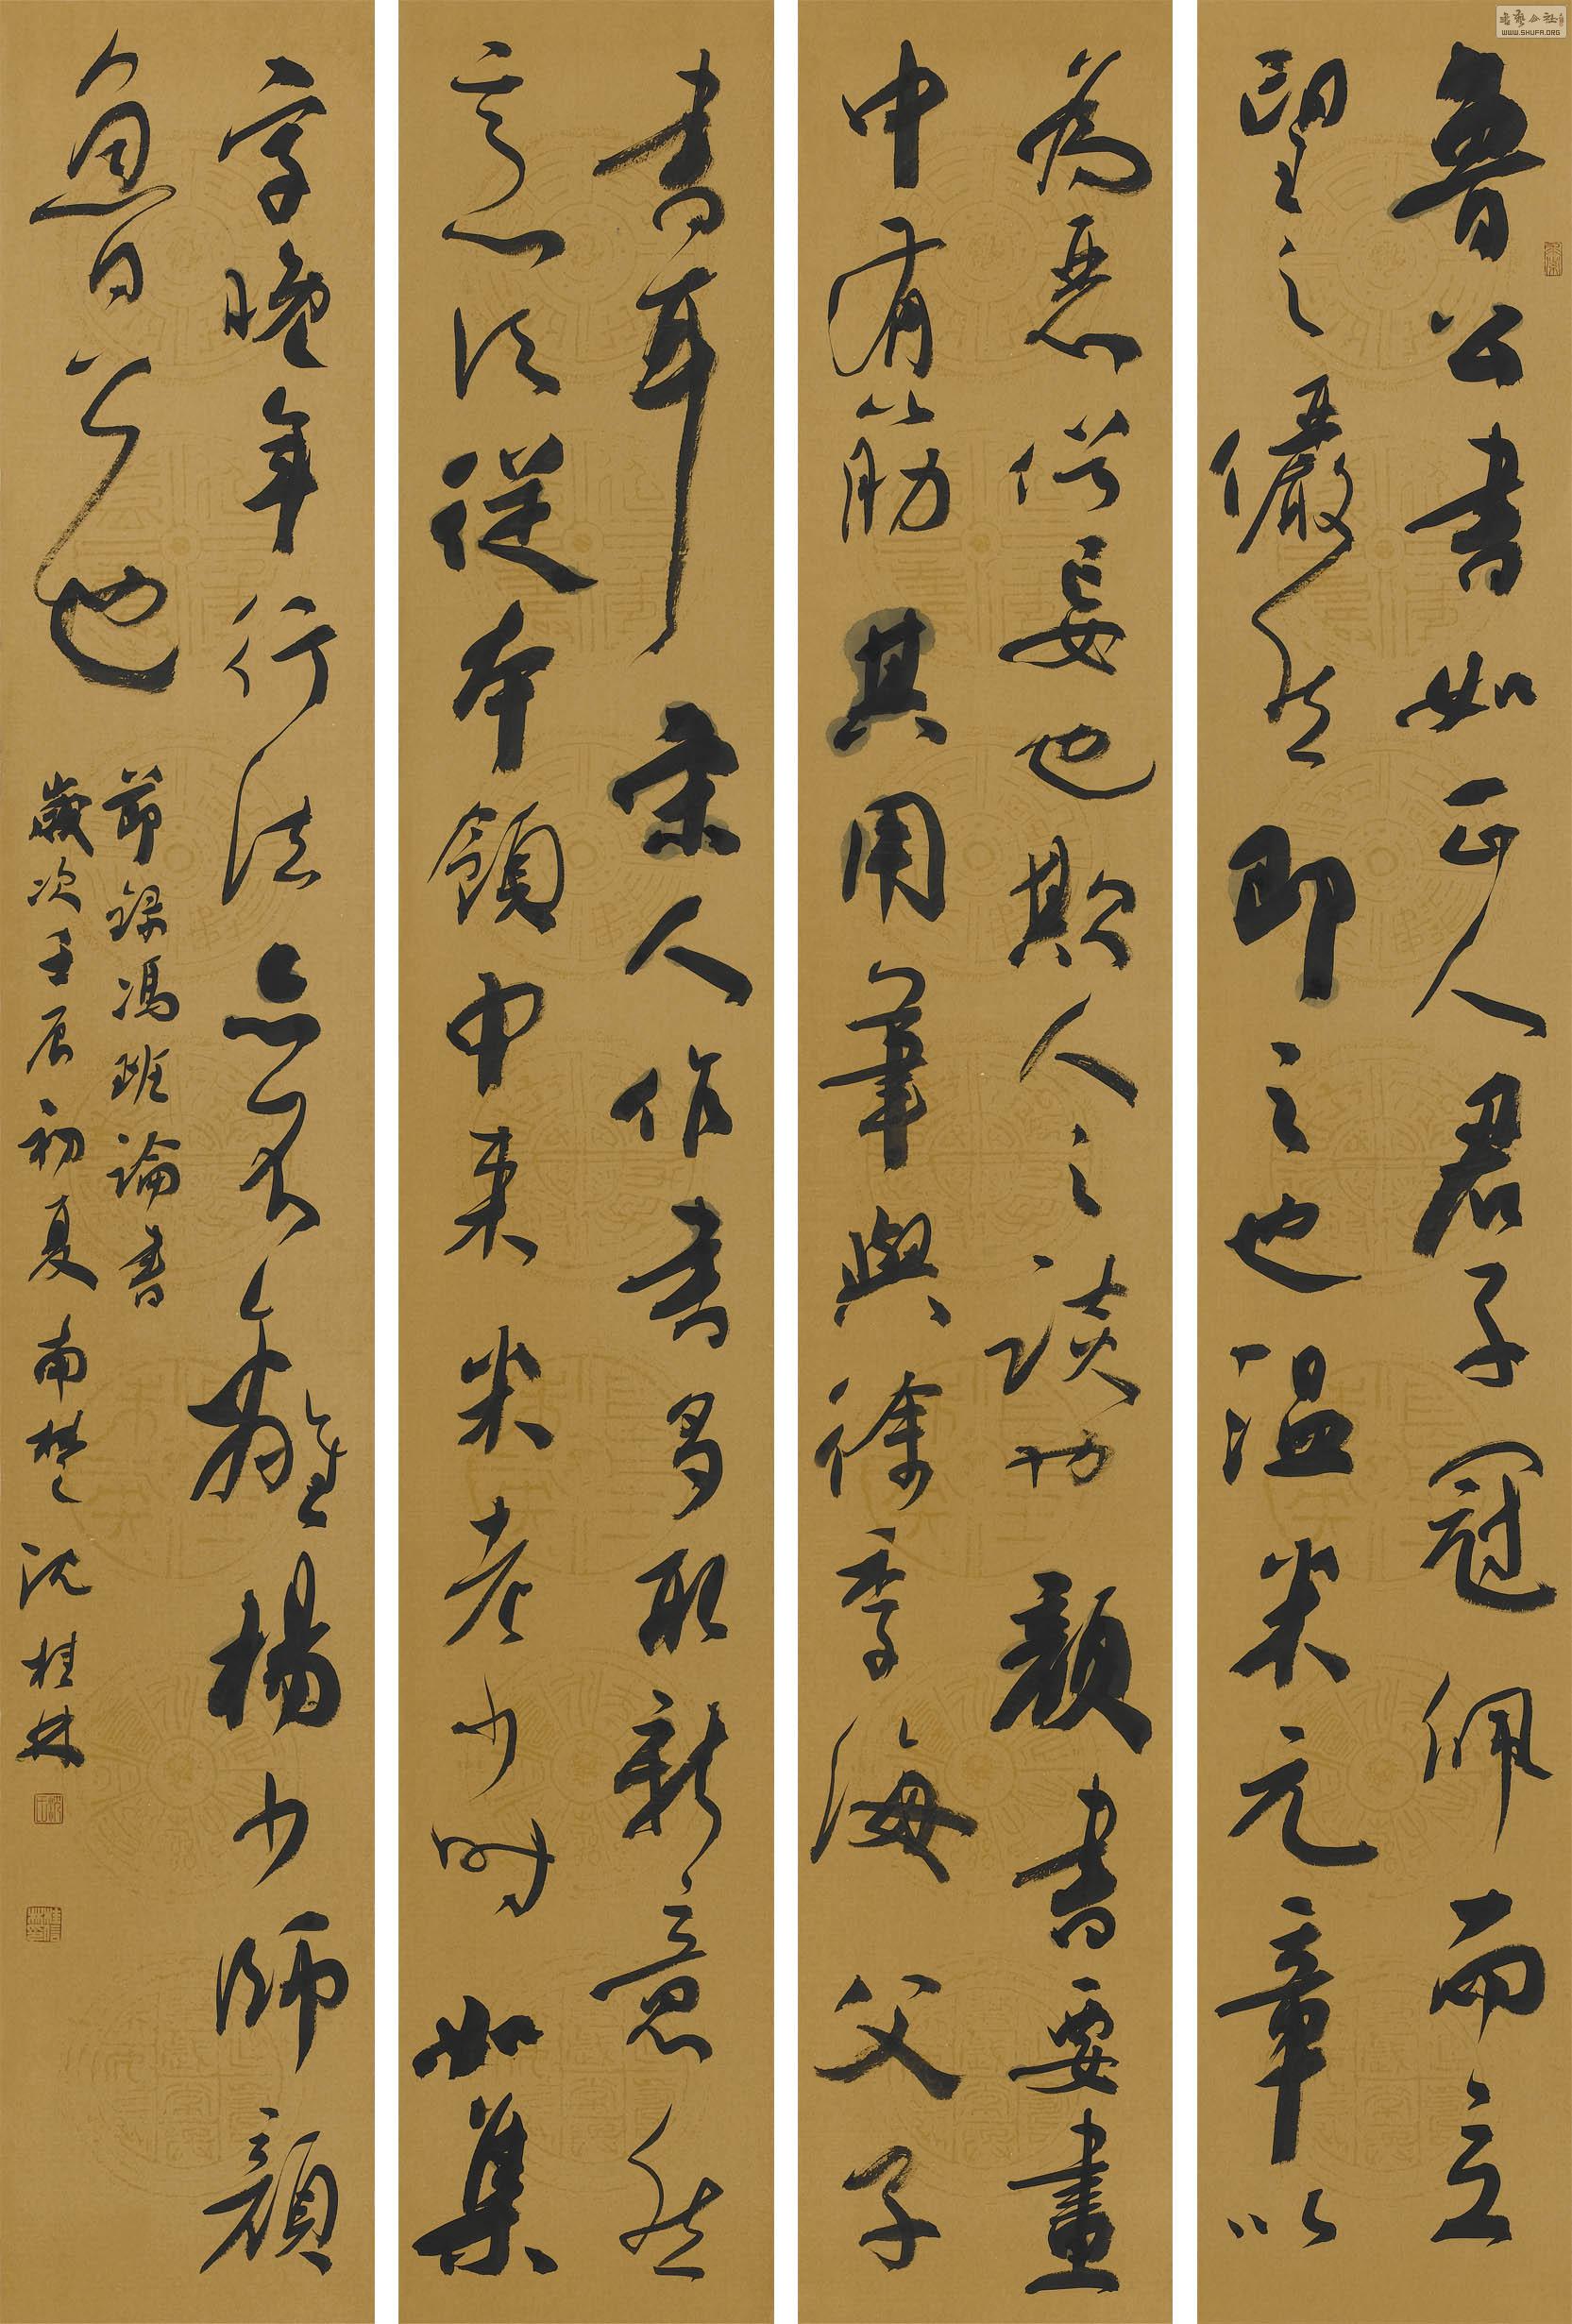 魯公書如正人君子冠佩而立
望之儼然即之也温米元章以
為惡俗妄也欺人之談也顏書要畫
中有筋其用筆與徐季海父子
書耳宋人作書多取新意然
意須從本領中來米老少時如集
字晚年行法亦不離楊少師顏
魯公也
節錄馮班論書
歲次壬辰初夏南楚沈桂林
WWW.SHUFA.ORG